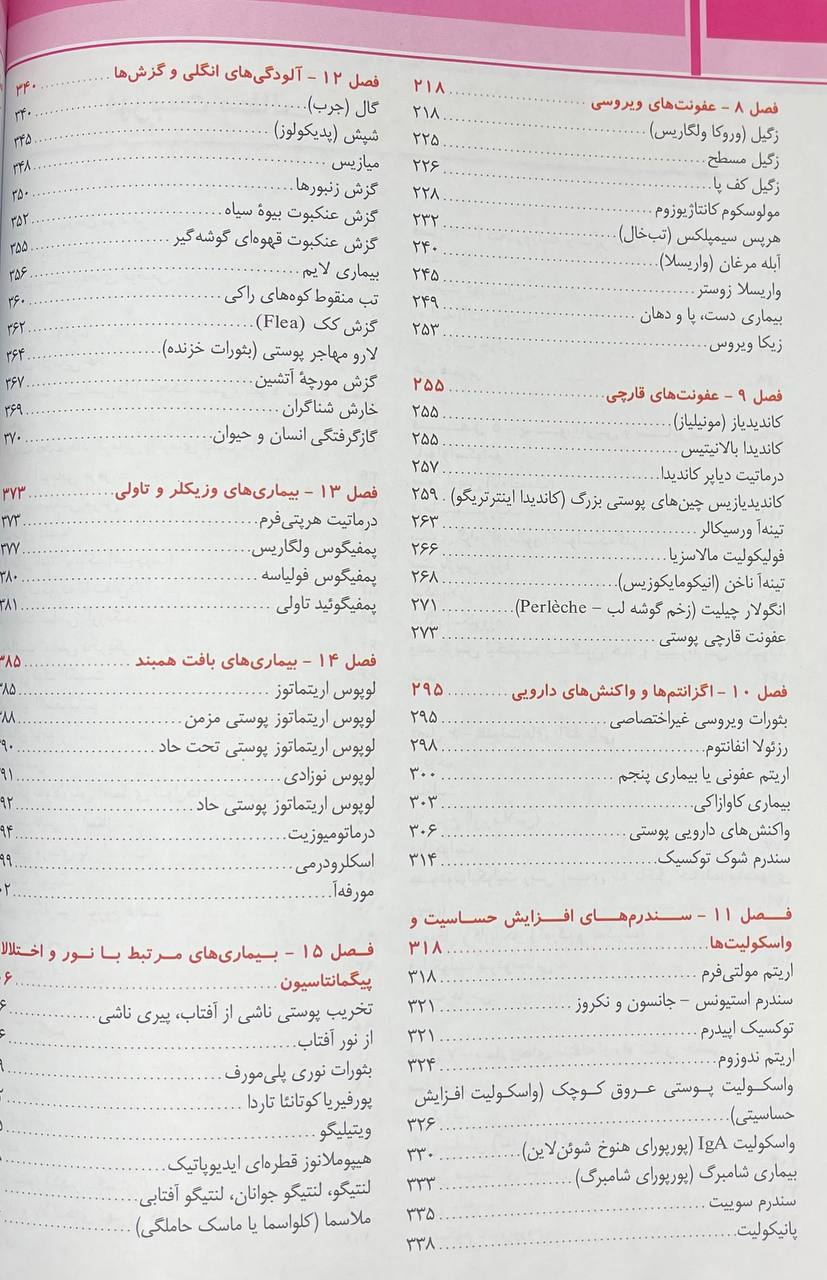 فصل ۸ - عفونت‌های ویروسی ........ ۲۱۸
زگیل (وروکا ولگاریس) ........ ۲۱۸
زگیل مسطح ........ ۲۲۵
زگیل کف پا ........ ۲۲۶
مولوسکوم کانتاژیوزوم ........ ۲۲۸
هرپس سیمپلکس (تب‌خال) ........ ۲۳۲
آبله مرغان (واریسلا) ........ ۲۴۰
واریسلا زوستر ........ ۲۴۵
بیماری دست، پا و دهان ........ ۲۴۹
زیکا ویروس ........ ۲۵۳
فصل ۹ - عفونت‌های قارچی ........ ۲۵۵
کاندیدیاز (مونیلیاز) ........ ۲۵۵
کاندیدا بالانیتیس ........ ۲۵۵
درماتیت دیاپر کاندیدا ........ ۲۵۷
کاندیدیازیس چین‌های پوستی بزرگ (کاندیدا اینترتریگو) . ۲۵۹
تینه‌آ ورسیکالر ........ ۲۶۳
فولیکولیت مالاسزیا ........ ۲۶۶
تینه‌آ ناخن (انیکومایکوزیس) ........ ۲۶۸
انگولار چیلیت (زخم گوشه لب - Perlèche) ........ ۲۷۱
عفونت قارچی پوستی ........ ۲۷۳
فصل ۱۰ - اگزانتم‌ها و واکنش‌های دارویی ........ ۲۹۵
بثورات ویروسی غیراختصاصی ........ ۲۹۵
رزئولا انفانتوم ........ ۲۹۸
اریتم عفونی یا بیماری پنجم ........ ۳۰۰
بیماری کاوازاکی ........ ۳۰۳
واکنش‌های دارویی پوستی ........ ۳۰۶
سندرم شوک توکسیک ........ ۳۱۴
فصل ۱۱ - سندرم‌های افزایش حساسیت و
واسکولیت‌ها ........ ۳۱۸
اریتم مولتی‌فرم ........ ۳۱۸
سندرم استیونس - جانسون و نکروز ........ ۳۲۱
توکسیک اپیدرم ........ ۳۲۱
اریتم ندوزوم ........ ۳۲۴
واسکولیت پوستی عروق کوچک (واسکولیت افزایش
حساسیتی) ........ ۳۲۶
واسکولیت IgA (پورپورای هنوخ شوئن‌لاین) ........ ۳۳۰
بیماری شامبرگ (پورپورای شامبرگ) ........ ۳۳۳
سندرم سوییت ........ ۳۳۵
پانیکولیت ........ ۳۳۸
فصل ۱۲ - آلودگی‌های انگلی و گزش‌ها ........ ۳۴۰
گال (جرب) ........ ۳۴۰
شپش (پدیکولوز) ........ ۳۴۵
میازیس ........ ۳۴۸
گزش زنبورها ........ ۳۵۰
گزش عنکبوت بیوهٔ سیاه ........ ۳۵۲
گزش عنکبوت قهوه‌ای گوشه‌گیر ........ ۳۵۵
بیماری لایم ........ ۳۵۶
تب منقوط کوه‌های راکی ........ ۳۶۰
گزش کک (Flea) ........ ۳۶۲
لارو مهاجر پوستی (بثورات خزنده) ........ ۳۶۴
گزش مورچهٔ آتشین ........ ۳۶۷
خارش شناگران ........ ۳۶۹
گازگرفتگی انسان و حیوان ........ ۳۷۰
فصل ۱۳ - بیماری‌های وزیکلر و تاولی ........ ۳۷۳
درماتیت هرپتی‌فرم ........ ۳۷۳
پمفیگوس ولگاریس ........ ۳۷۷
پمفیگوس فولیاسه ........ ۳۸۰
پمفیگوئید تاولی ........ ۳۸۱
فصل ۱۴ - بیماری‌های بافت همبند ........ ۳۸۵
لوپوس اریتماتوز ........ ۸۵
لوپوس اریتماتوز پوستی مزمن ........ ۸۸
لوپوس اریتماتوز پوستی تحت حاد ........ ۹۰
لوپوس نوزادی ........ ۹۱
لوپوس اریتماتوز پوستی حاد ........ ۹۲
درماتومیوزیت ........ ۹۴
اسکلرودرمی ........ ۹۹
مورفه‌آ ........ ۰۲
فصل ۱۵ - بیماری‌های مرتبط با نور و اختلالا
پیگمانتاسیون ........ ۰۶
تخریب پوستی ناشی از آفتاب، پیری ناشی ........ ۶
از نور آفتاب ........ ۶
بثورات نوری پلی‌مورف ........ ۹
پورفیریا کوتانئا تاردا ........
ویتیلیگو ........
هیپوملانوز قطره‌ای ایدیوپاتیک ........
لنتیگو، لنتیگو جوانان، لنتیگو آفتابی ........
ملاسما (کلواسما یا ماسک حاملگی) ........